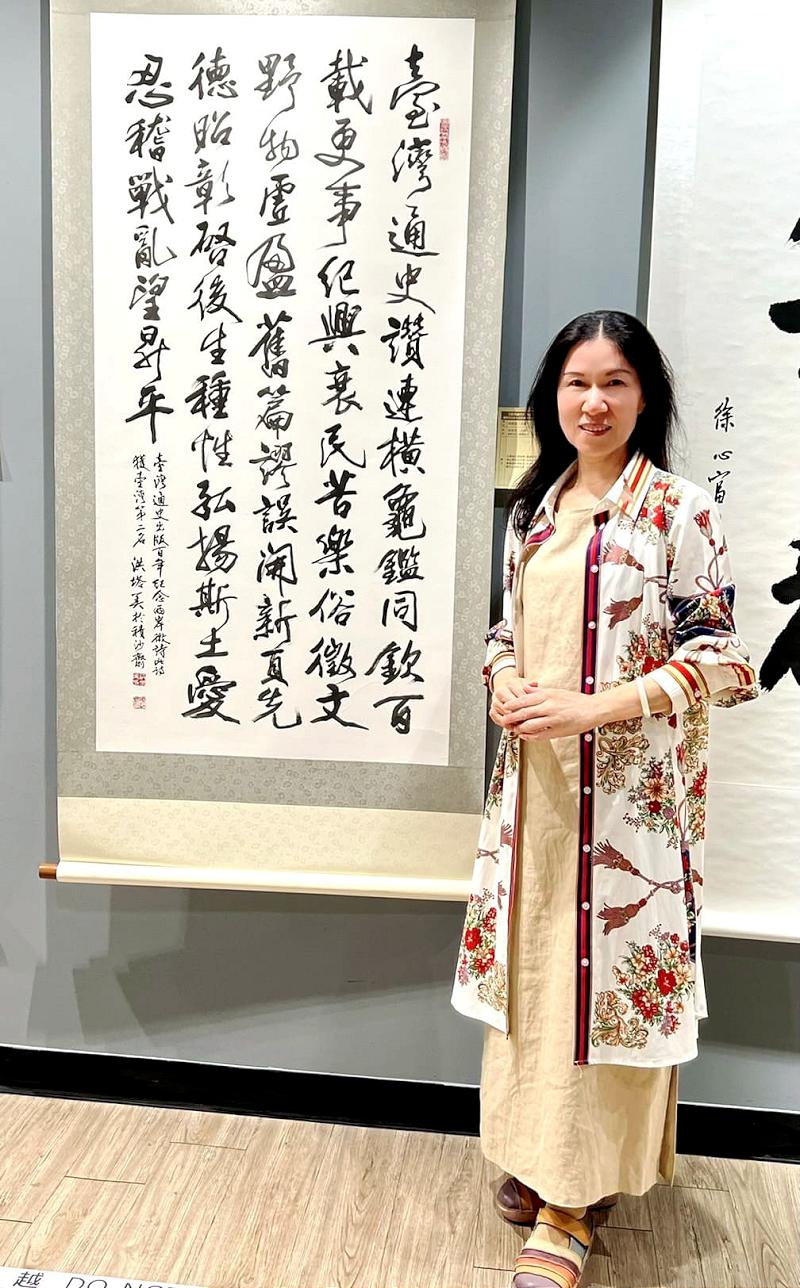 臺灣通史讚連橫龜鑑同欽百
載更事紀興衰民苦樂俗徵文
野物虛盈舊篇謬誤開新頁先
德貽彰啓後生種性弘揚斯土愛
忍稽戰亂望昇平
臺灣通史出版百年紀念兩岸徵詩此詩
獲臺灣第二名 洪塔美於積沙齋
徐心富
越 DO NOT